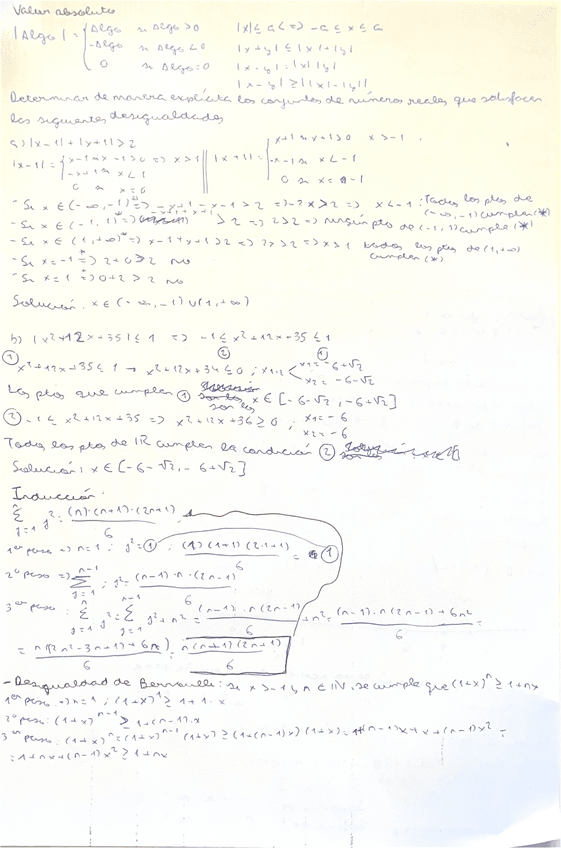 Valor absoluto
|Algo| = { Algo si Algo > 0
-Algo si Algo < 0
0 si Algo = 0
|x| ≤ a <=> -a ≤ x ≤ a
|x+y| ≤ |x|+|y|
|x·y| = |x||y|
|x-y| ≥ ||x|-|y||
Determinar de manera explícita los conjuntos de números reales que satisfacen
las siguientes desigualdades
a) |x-1|+|x+1|>2
|x-1| = { x-1 si x-1>0 => x>1
-x+1 si x<1
0 si x=0
|x+1| = { x+1 si x+1>0 x>-1
-x-1 si x<-1
0 si x=-1
- Si x ∈ (-∞,-1) => -x+1-x-1>2 => -2x>2 => x<-1: Todos los ptos de (-∞,-1) cumplen (*)
- Si x ∈ (-1,1) => -x+1+x+1 > 2 => 2>2 => ningún pto de (-1,1) cumple (*)
- Si x ∈ (1,+∞) => x-1+x+1>2 => 2x>2 => x>1 todos los ptos de (1,+∞) cumplen (*)
- Si x=-1 => 2+0>2 no
- Si x=1 => 0+2>2 no
Solución: x ∈ (-∞,-1) ∪ (1,+∞)
b) |x²+12x+35| ≤ 1 => -1 ≤ x²+12x+35 ≤ 1
② ①
① x²+12x+35 ≤ 1 → x²+12x+34 ≤ 0; x1,2 < x1=-6+√2
x2=-6-√2
Los ptos que cumplen ① son los x ∈ [-6-√2, -6+√2]
② -1 ≤ x²+12x+35 => x²+12x+36 ≥ 0; x1=-6
x2=-6
Todos los ptos de IR cumplen la condición ②
Solución: x ∈ [-6-√2, -6+√2]
Inducción:
n Σ j=1 j² = (n)·(n+1)·(2n+1) / 6
1er paso => n=1; j²=1; (1)(1+1)(2·1+1) / 6 = 1
2º paso => n-1 Σ j=1 j² = (n-1)·n·(2n-1) / 6
3er paso: n Σ j=1 j² = n-1 Σ j=1 j²+n² = (n-1)·n(2n-1) / 6 + n² = (n-1)·n(2n-1)+6n² / 6 =
= n(2n²-3n+1+6n) / 6 = n(n+1)(2n+1) / 6
- Desigualdad de Bernoulli: si x>-1 y n ∈ IN, se cumple que (1+x)ⁿ ≥ 1+nx
1er paso => n=1; (1+x)¹ ≥ 1+1·x
2º paso: (1+x)ⁿ⁻¹ ≥ 1+(n-1)·x
3er paso: (1+x)ⁿ = (1+x)ⁿ⁻¹ (1+x) ≥ (1+(n-1)x)(1+x) = 1+(n-1)x+x+(n-1)x² =
= 1+nx+(n-1)x² ≥ 1+nx